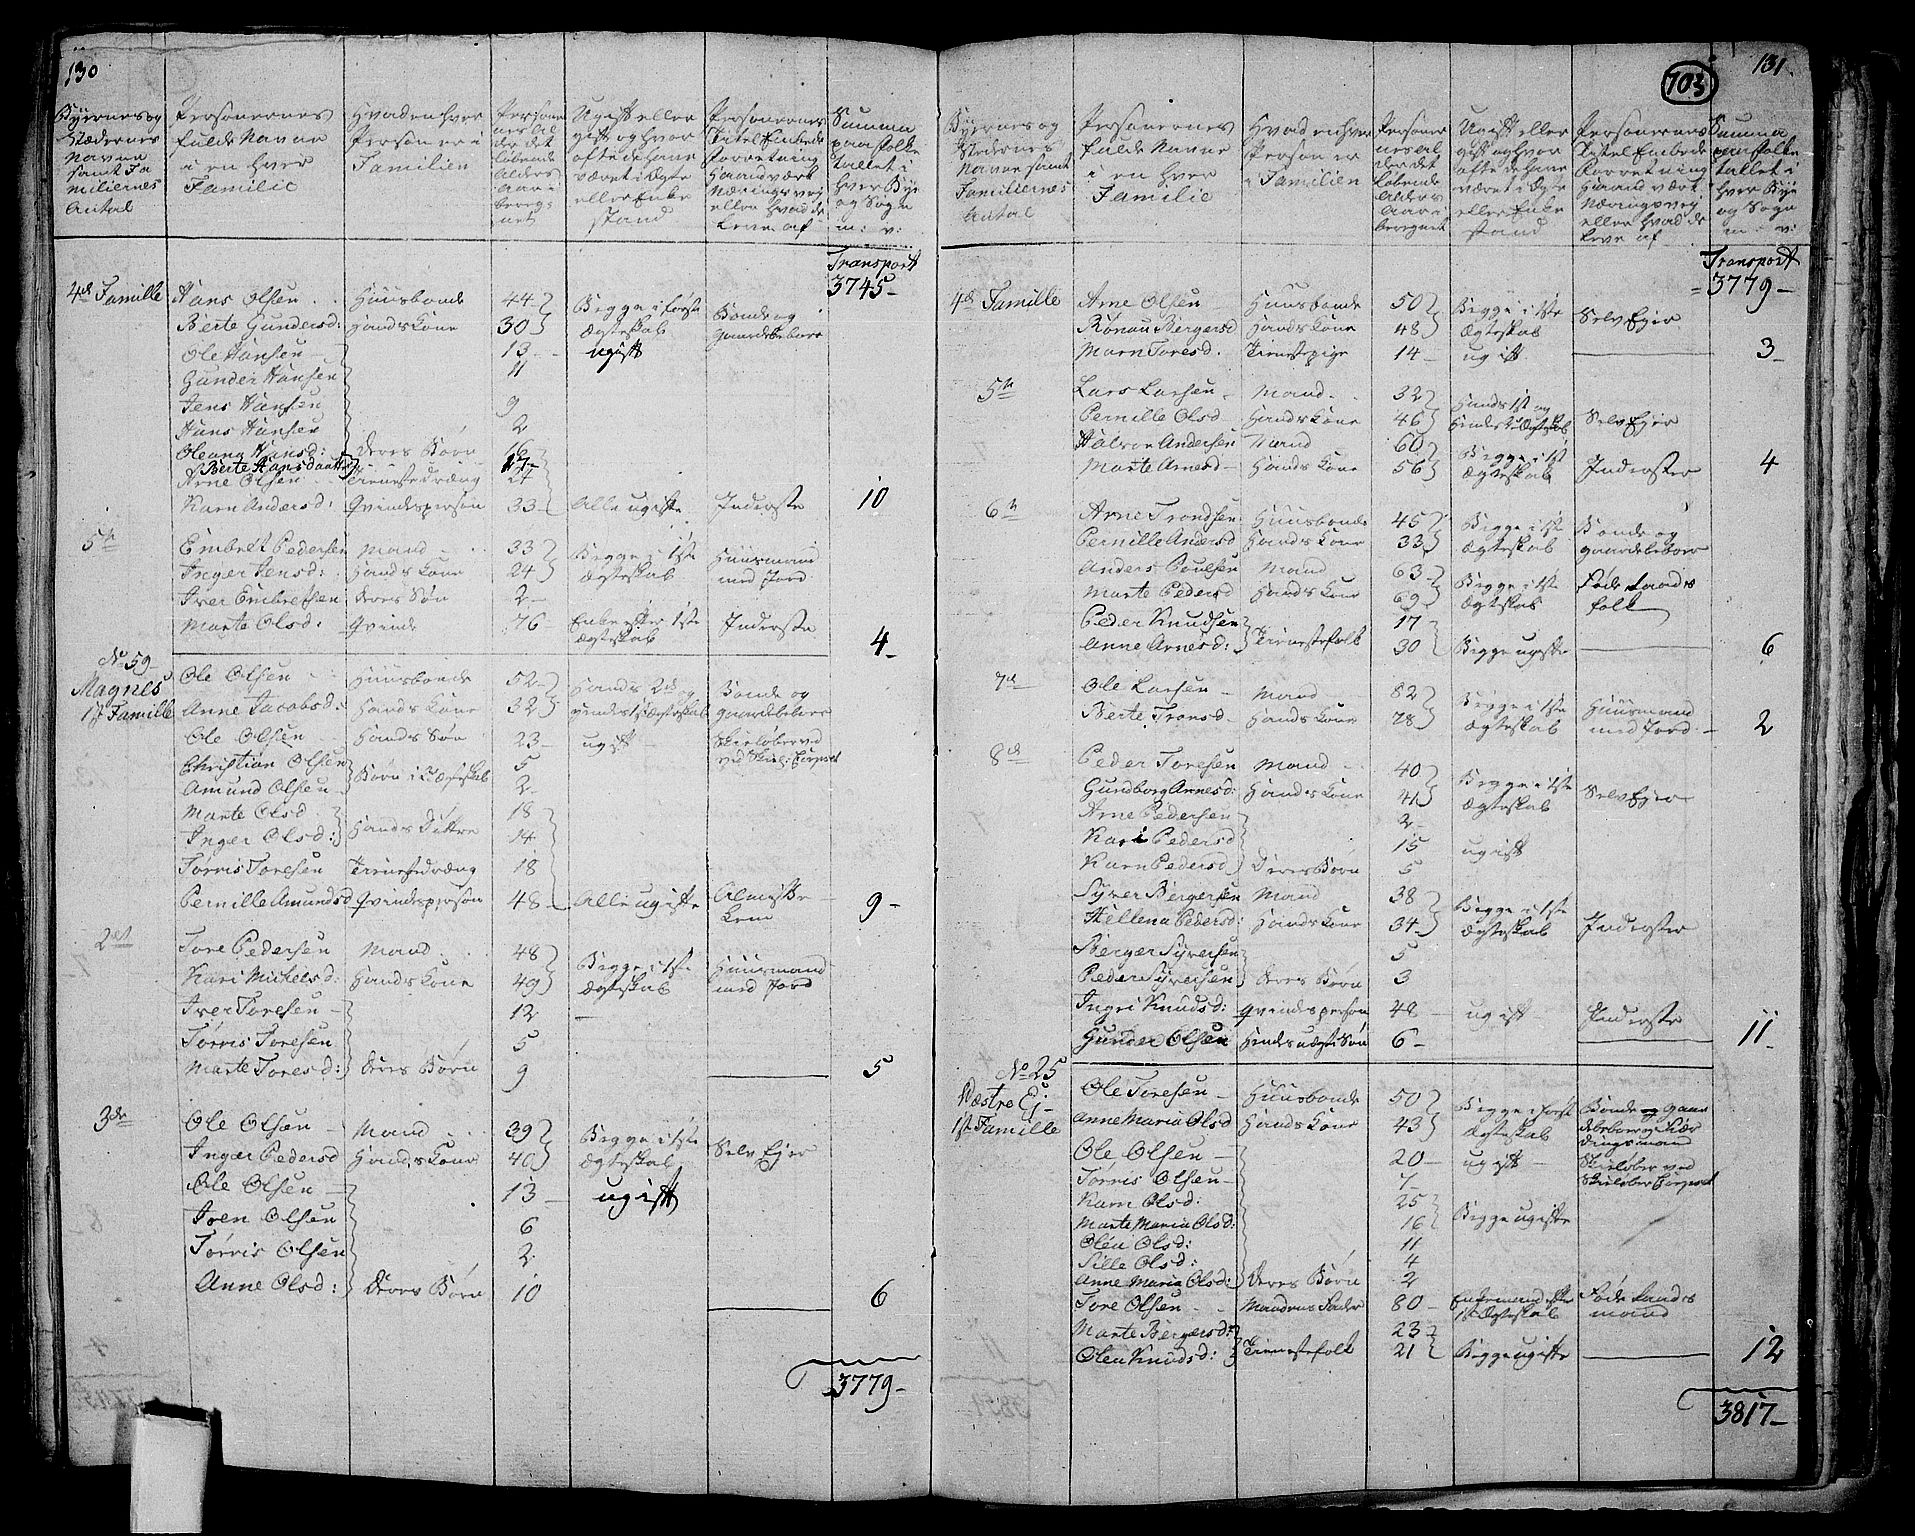 130
Byernes og Stædernes Navne samt Familiernes Antal
Personernes fulde Navne i en hver Familie
Hvad en hver Person er i Familien
Personernes Alder det løbende Alders Aar iberegnet
Ugift eller gift og hvor ofte de have været i Ægte eller Enkestand
Personernes Titel Embede Forretning Haandværk Næringsvej eller hvad de leve af
Summa paa folketallet i hver Bye og Sogn m: v:
Transport 3745-
4de Famille Hans Olsen Huusbonde 44 Begge i første Ægteskab Bonde og gaardebeboer
Berte Gundersd: Hands Kone 30
Ole Hansen 13 ugift
Gunder Hansen 11
Jens Hansen 9
Hans Hansen 2
Oleana Hansd: Deres Børn 16
Berte Hansdaatter
Arne Olsen Tieneste dræng 24
Karn Andersd: Qvindesperson 33 Alle ugifte Inderste 10
5te Embret Pedersen Mand 33 Begge i 1ste Ægteskab Huusmand med Jord
Inger Jensd: Hands Kone 24
Iver Embretsen deres Søn 2
Marte Olsd: Qvinde 76 Enke efter 1ste Ægteskab Inderste 4-
No 59-
Magnes
1st Famille Ole Olsen Huusbonde 52 Hands 2det og hendes 1st Ægteskab Bonde og gaardebeboer
Anne Jacobsd: Hands Kone 32
Ole Olsen Hands Søn 23 ugift Skieløber ved Skiel: Corpset
Christian Olsen Børn i 2 Ægteskab 5
Amund Olsen 2
Marte Olsd Hands Døttre 18
Inger Olsd: 14
Torris Toresen Tienestedræng 18
Pernille Amundsd Qvindesperson 48 Alle ugifte Almisse Lem 9-
2det Tore Pedersen Mand 48 Begge i 1ste Ægteskab Huusmand med Jord
Kari Mickelsd: Hands Kone 49
Iver Toresen 12
Torris Toresen 5
Marte Toresd: Deres Børn 9 5
3de Ole Olsen Mand 39 Begge i 1ste Ægteskab Selv Ejer
Inger Pedersd Hands Kone 40
Ole Olsen 13 ugift
Iven Olsen 6
Torris Olsen 2
Anne Olsd: Deres Børn 10 6
3779-
703
131
Byernes og Stedernes Navne samt Familiernes Antal
Personernes fulde Navne i en hver Familie
Hvad en hver Person er i Familien
Personernes Alder det løbende Alders Aar iberegnet
Ugift eller gift og hvor ofte de have været i Ægte eller Enkestand
Personernes Titel Embede Forretning Haandværk Næringsvej eller hvad de leve af
Summa paa folketallet i hver Bye og Sogn m: v:
Transport 3779-
4de Famille Arne Olsen Huusbonde 50 Begge i 1ste Ægteskab Selv Ejer
Rønau Bergersd Hands Kone 48
Marn Toresd. Tienestepige 14 ugift 3
5te Lars Larsen Mand 32 Hands 1st og hendes 2 Ægteskab Selv Ejer
Pernille Olsd Hands Kone 46
Halvor Andersen Mand 60 Begge i 1st Ægteskab Inderster 4
Marte Arnesd Hands Kone 56
6te Arne Trondsen Huusbonde 45 Begge i 1ste Ægteskab Bonde og gaardebeboer
Pernille Andersd Hands Kone 33
Anders Poulsen Mand 63 Begge i 1ste Ægteskab Føderaadsfolk
Marte Pedersd Hands Kone 69
Peder Knudsen Tienestefolk 17
Anne Arnesd: 30 Begge ugifte 6
7de Ole Larsen Mand 82 Begge i 1ste Ægteskab Huusmand med Jord 2
Berte Tronsd Hands Kone 78
8de Peder Toresen Mand 40 Begge i 1ste Ægteskab Selv Ejer
Gundborg Arnesd: Hands Kone 41
Arne Pedersen 2
Kari Pedersd 15 ugift
Karn Pedersd Deres Børn 5
Syver Bergersen Mand 38 Begge i 1ste Ægteskab Inderster
Hellena Pedersd: Hands Kone 34
Berger Syversen 5
Peder Syversen deres Børn 3
Ingri Knudsd: Qvindesperson 48 ugift Inderste
Gunder Olsen Hendes uægte Søn 6 11
No 25
Næstre Ej
1st Famille Ole Toresen Huusbonde 50 Begge i først Ægteskab Bonde og Gaardebeboer
Anne Maria Olsd Hands Kone 43
Ole Olsen 20 ugift Skieløber ved Skieløber Corpset
Torris Olsen 7
Karn Olsd: 25 Begge ugifte
Marte Maria Olsd: 16
Olea Olsd: 11
Sille Olsd: 4
Anne Maria Olsd: Deres Børn 2
Tore Olsen Mandens Fader 80 Enkemand efter 1st Ægteskab Føderaadsmand
Marte Bergersd: Tienestefolk 23
Olea Knudsd: 21 Begge ugifte 12
3817-